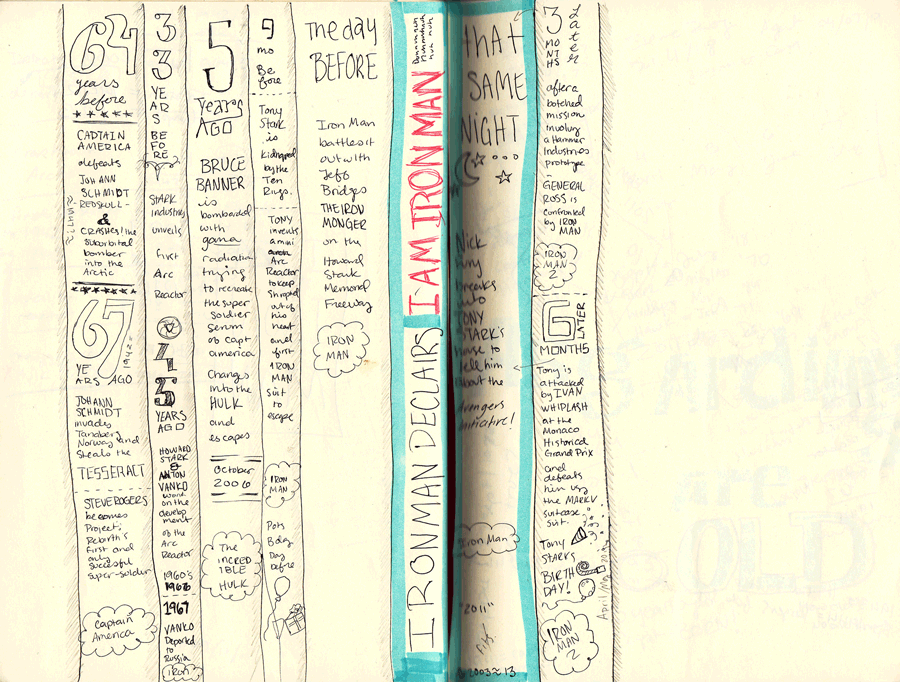 64
years
before
CAPTAIN
AMERICA
defeats
JOHANN
SCHMIDT
-REDSKULL-
&
CRASHES! the
suborbital
bomber
into the
Arctic
67
1942
YE
ARS AGO
JOHANN
SCHMIDT
invades
Norway and
Steals the
TESSERACT
STEVE ROGERS
becomes
Project:
Rebirth's
first and
only
succesful
super-soldier
Captain
America
33
YE
AR
S
BE
FO
RE
STARK
Industries
unveils
first
Arc
Reactor
45
YEARS
AGO
HOWARD
STARK
&
ANTON
VANKO
work
on the
develop
ment
of the
Arc
Reactor
1960's
1963
1967
VANKO
Deported
to
Russia
iron
5
Years
AGO
BRUCE
BANNER
is
bombarded
with
gama
radiation
trying
to recreate
the super
soldier
Serum
of capt
america
Changes
into the
HULK
and
escapes
October
2006
The
INCRED
IBLE
HULK
9
mo
Be
fore
Tony
Stark
is
kidnapped
by the
Ten
Rings.
TONY
invents
a mini
Arc
Reactor
to keep
Shrapnel
out of
his
heart
and
first
IRON
MAN
suit
to
escape
IRON
MAN
Pots
Bday
Day
Before
The day
BEFORE
Iron Man
battles it
out with
Jeff
Bridges
THE IRON
MONGER
on the
Howard
Stark
Memorial
Freeway
IRON
MAN
IRONMAN DECLAIRS
I AM IRON MAN
that
SAME
NIGHT
Nick
Fury
breaks
into
TONY
STARK'S
house to
tell him
about the
Avengers
Initiative!
Iron Man
"2011"
2003-13
3
MO
NT
HS
Later
after a
botched
mission
involving
a Hammer
Industries
prototype
GENERAL
ROSS is
confronted
by IRON
MAN
IRON
MAN
2
6
LATER
MONTHS
Tony is
attacked
by IVAN
WHIPLASH
at the
Monaco
Historical
Grand Prix
and
defeats
him
the MARK V
suitcase
suit.
Tony
STARKS
BIRTH
DAY!
April/May
IRON
MAN
2